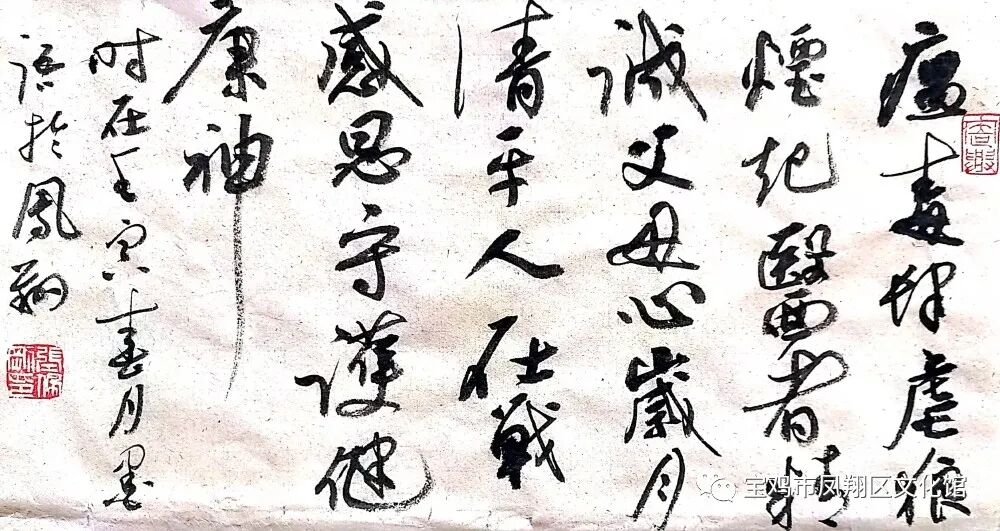 瘟毒肆虐狼
煙起醫者精
誠父母心歲月
清平人在戰
感恩守護健
康神
时在壬寅春月墨
语於鳳翔
宝鸡市凤翔区文化馆